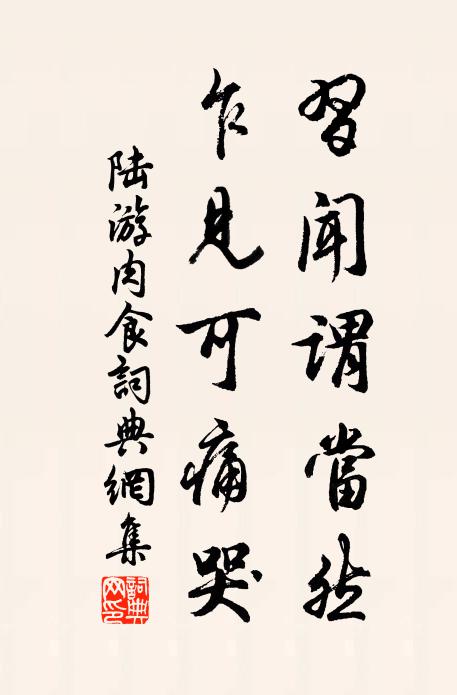 習聞謂當然
乍見可痛哭
陆游肉食詞典網集
詞典网印